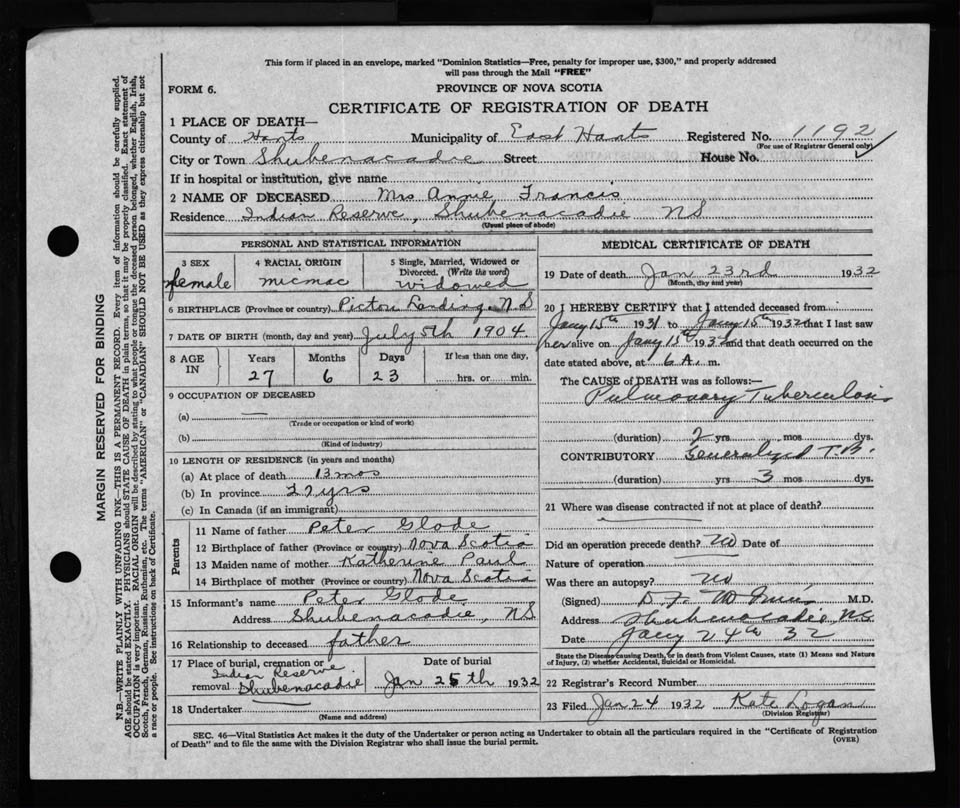 This form if placed in an envelope, marked "Dominion Statistics—Free, penalty for improper use, $300," and properly addressed
will pass through the Mail "FREE"
FORM 6.
PROVINCE OF NOVA SCOTIA
CERTIFICATE OF REGISTRATION OF DEATH
1 PLACE OF DEATH—
County of Hants Municipality of East Hants Registered No. 1192
(For use of Registrar General only)
City or Town Shubenacadie Street House No.
If in hospital or institution, give name
2 NAME OF DECEASED Mrs Annie Francis
Residence Indian Reserve, Shubenacadie NS
(Usual place of abode)
PERSONAL AND STATISTICAL INFORMATION
3 SEX
female
4 RACIAL ORIGIN
micmac
5 Single, Married, Widowed or
Divorced. (Write the word)
widowed
6 BIRTHPLACE (Province or country) Pictou Landing, N.S
7 DATE OF BIRTH (month, day and year) July 5th 1904
8 AGE
IN
Years Months Days If less than one day,
27 6 23 hrs. or min.
9 OCCUPATION OF DECEASED
(a) —
(Trade or occupation or kind of work)
(b)
(Kind of industry)
10 LENGTH OF RESIDENCE (in years and months)
(a) At place of death 13 mos
(b) In province 27 yrs
(c) In Canada (if an immigrant)
Parents
11 Name of father Peter Glode
12 Birthplace of father (Province or country) Nova Scotia
13 Maiden name of mother Katherine Paul
14 Birthplace of mother (Province or country) Nova Scotia
15 Informant's name Peter Glode
Address Shubenacadie, NS
16 Relationship to deceased father
17 Place of burial, cremation or
removal Indian Reserve
Shubenacadie
Date of burial
Jan 25th 1932
18 Undertaker
(Name and address)
MEDICAL CERTIFICATE OF DEATH
19 Date of death Jan 23rd 1932
(Month, day and year)
20 I HEREBY CERTIFY that I attended deceased from
Jany 15th 1931 to Jany 15th 1932 that I last saw
her alive on Jany 15th 1932 and that death occurred on the
date stated above, at 6 A. m.
The CAUSE of DEATH was as follows:—
Pulmonary Tuberculosis
(duration) 2 yrs. mos. dys.
CONTRIBUTORY Generalized T.B.
(duration) yrs 3 mos dys.
21 Where was disease contracted if not at place of death?
Did an operation precede death? No Date of
Nature of operation
Was there an autopsy? No
(Signed) D. F. M.D.
Address Shubenacadie NS
Date Jany 24th 32
State the Disease causing Death, or in death from Violent Causes, state (1) Means and Nature
of Injury, (2) whether Accidental, Suicidal or Homicidal.
22 Registrar's Record Number
23 Filed Jan 24 1932 Kate Logan
(Division Registrar)
SEC. 46—Vital Statistics Act makes it the duty of the Undertaker or person acting as Undertaker to obtain all the particulars required in the "Certificate of Registration
of Death" and to file the same with the Division Registrar who shall issue the burial permit.
(OVER)
MARGIN RESERVED FOR BINDING
N.B.—WRITE PLAINLY WITH UNFADING INK—THIS IS A PERMANENT RECORD. Every item of information should be carefully supplied.
AGE should be stated EXACTLY. PHYSICIANS should STATE CAUSE OF DEATH in plain terms, so that it may be properly classified. Exact statement of
OCCUPATION is very important. RACIAL ORIGIN will be described by stating to what people or tongue the deceased person belonged, whether English, Irish,
Scotch, French, German, Russian, Ruthenian, etc. The terms "AMERICAN" or "CANADIAN" SHOULD NOT BE USED as they express citizenship but not
a race or people. See instructions on back of Certificate.